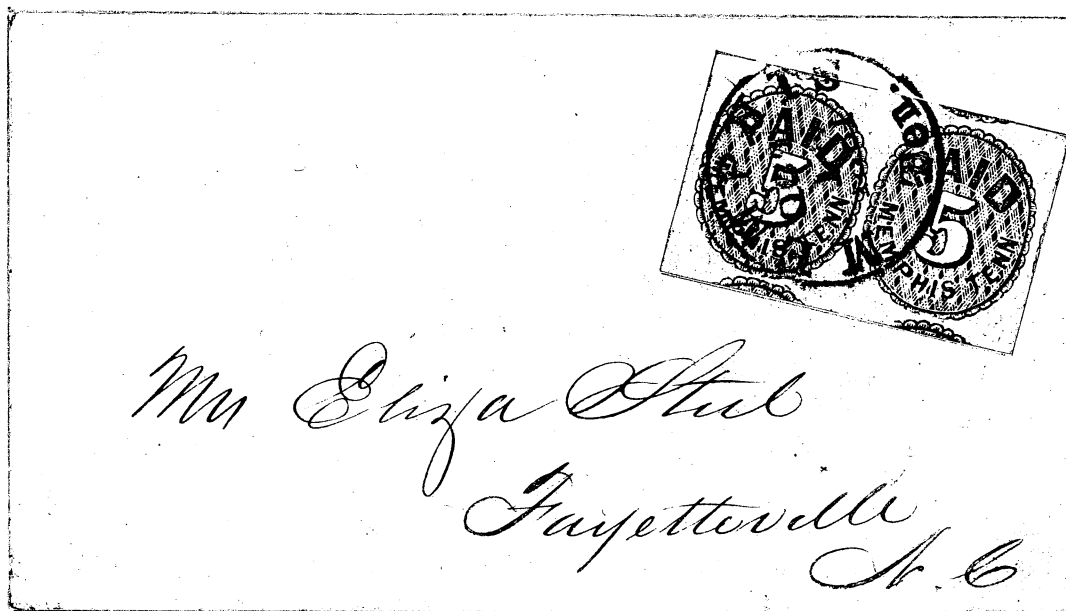 PAID
5
MEMPHIS, TENN
PAID
5
MEMPHIS, TENN
Mrs Eliza Steel
Fayetteville
N. C